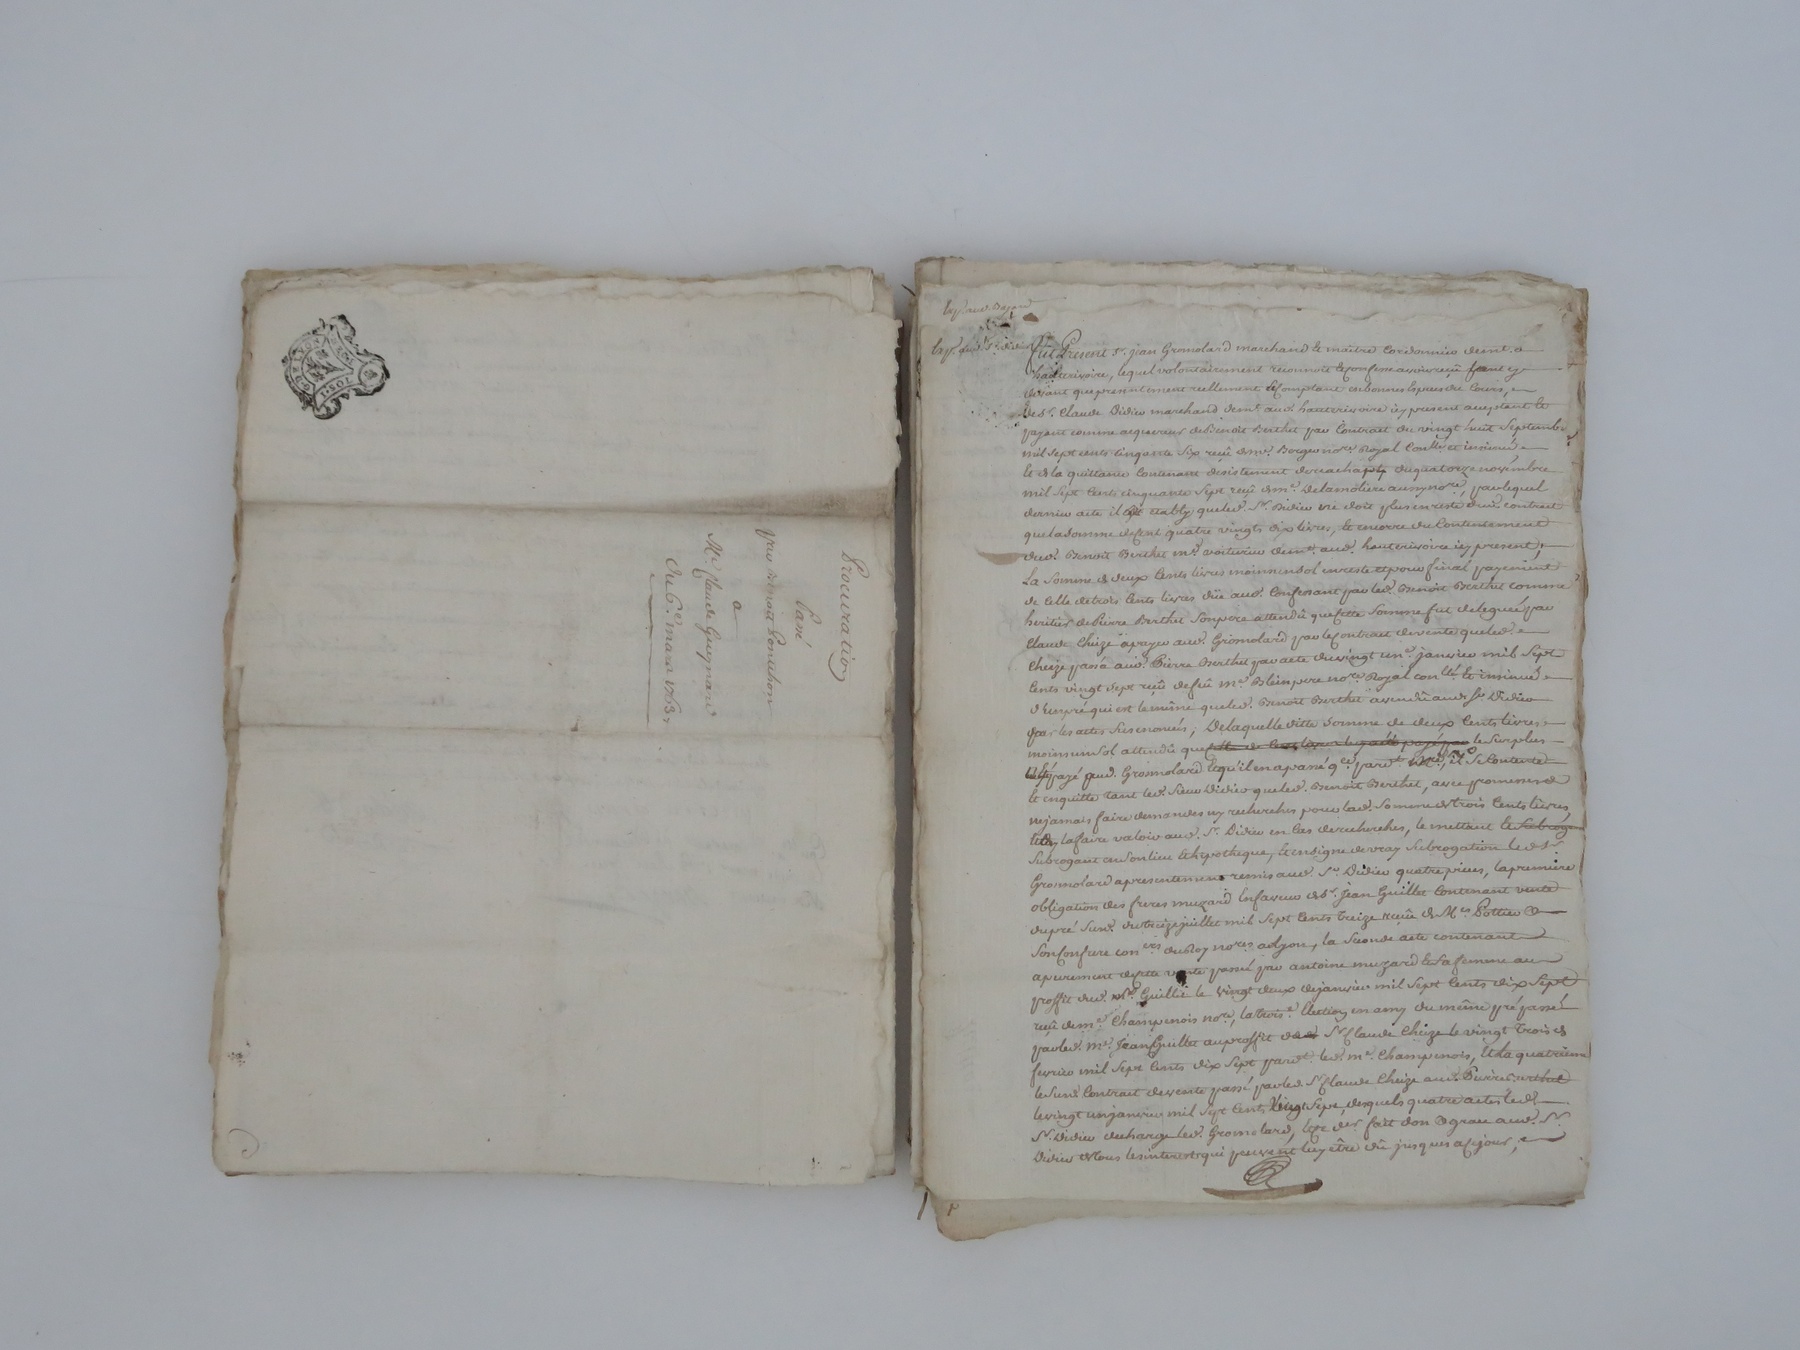 Procuration
Passé
par Benoit Ponchon
a
Mr. Claude Guignard
Du 6e. mars 1763
Exp. aud. Sr. Didier
Fut Present Sr. jean Gromolard marchand & maitre Cordonnier demt. a
hauterivoire, lequel volontairement reconnoit & confesse avoir reçû
devant que presentement reellement & Comptant en bonnes Especes de Cours,
de Sr. Claude Didier marchand demt. aud. hauterivoire icy present acceptant &
payant comme acquereur de Benoit Berthet par Contrat du vingt huit Septembre
mil sept cents cinquante Six reçû Me. Borgeu nore. Royal
& de la quittance Contenant desistement de reachapt du quatorze novembre
mil Sept Cents cinquante Sept reçû Me. Delamoliere aussy nore., par lequel
dernier acte il est etably que led. Sr. Didier ne doit plus en reste dud. contrat
que la somme de Cent quatre vingts dix livres, & encorre du Consentement
dud. Benoit Berthet md. voiturier demt. aud. hauterivoire icy present,
La Somme de deux Cents livres moins un sol en reste et pour final payement
de Celle de trois Cents livres düe aud. Confessant par led. Benoit Berthet comme
heritier de Pierre Berthet Son pere attendû que cette Somme fut deleguée par
Claude Cheize a payer aud. Gromolard par le Contrat de vente que led.
Cheize passa aud. Pierre Berthet par acte du vingt un janvier mil Sept
Cents vingt Sept reçû de feû Me. Bleinpere nore. Royal
d'un pré qui est le même que led. Benoit Berthet a vendû aud. Sr. Didier
par les actes Sus enoncés; De laquelle ditte Somme de deux Cents livres
moins un Sol attendû que le Surplus
payé aud. Gromolard & qu'il en a passé qce. il Se Contente
& en quitte tant led. Sieur Didier que led. Benoit Berthet, avec promesse de
ne jamais faire demandes ny recherches pour lad. Somme de trois Cents livres,
la faire valoir aud. Sr. Didier en Cas de recherches, le mettant
Subrogant en Son lieu & hypotheque, & en signe de vray Subrogation led. Sr.
Gromolard a presentement remis aud. Sr. Didier quatre pieces, la premiere
obligation des freres muzard En faveur de Sr. Jean Guillet Contenant vente
du pré Susd. du treize juillet mil Sept Cents treize reçûe de Mes. Pottier &
Son Confrere du Roy nores. a Lyon, la Seconde acte contenant
apurement de cette vente passé par antoine muzard & Sa femme au
proffit dud. Sr. Guillet le vingt deux de janvier mil Sept Cents dix Sept
reçû de Me. Champenois nore., la troise. Election en amy du même pré passé
par led. Sr. Jean Guillet au proffit de Sr. Claude Cheize le vingt trois de
fevrier mil Sept Cents dix Sept led. Me. Champenois, & la quatrieme
le Susd. Contrat de vente passé par led. Sr. Claude Cheize aud. Pierre Berthet
le vingt un janvier mil Sept Cents vingt Sept, desquels quatre actes led.
Sr. Didier decharge led. Gromolard, fait don & grace aud. Sr.
Didier de tous les interets qui peuvent luy être dû jusques a ce jour,